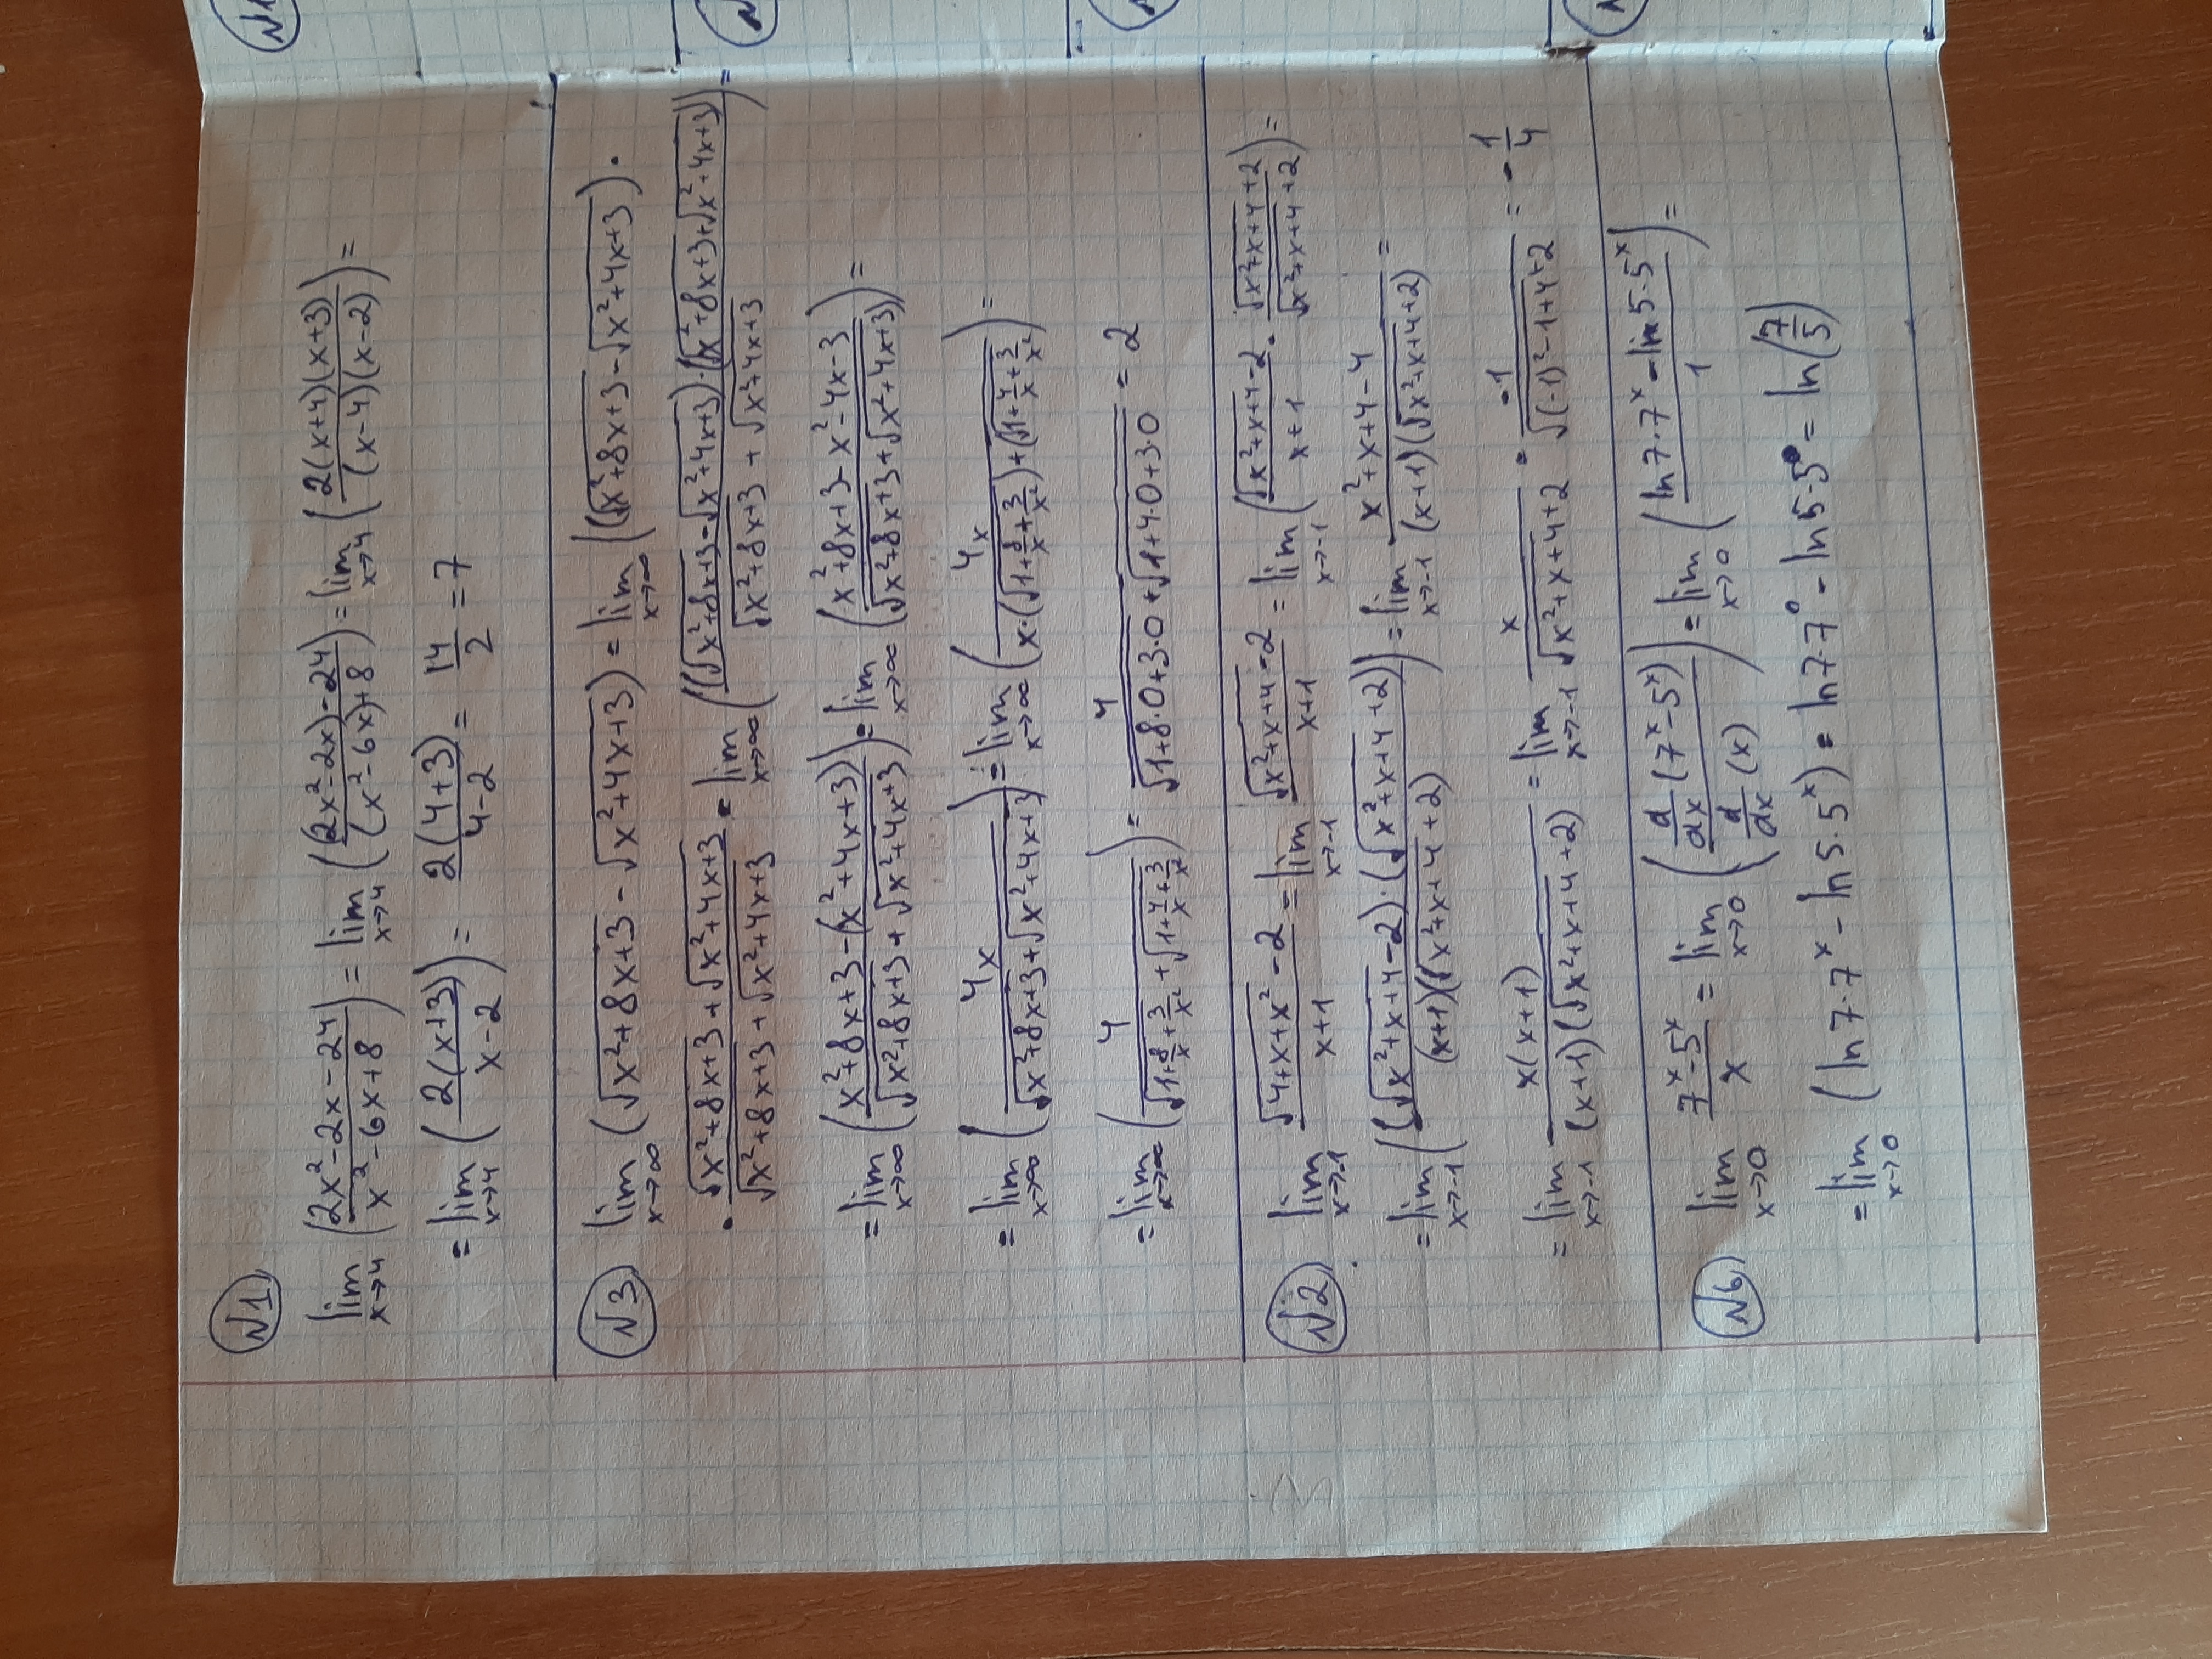 №1
lim x→4 ((2x²-2x-24)/(x²-6x+8)) = lim x→4 (((2x²-2x)-24)/((x²-6x)+8)) = lim x→4 ((2(x+4)(x+3))/((x-4)(x-2))) =
= lim x→4 ((2(x+3))/(x-2)) = (2(4+3))/(4-2) = 14/2 = 7
№3 lim x→∞ (√(x²+8x+3) - √(x²+4x+3)) = lim x→∞ ((√(x²+8x+3) - √(x²+4x+3)) ·
· (√(x²+8x+3) + √(x²+4x+3))/(√(x²+8x+3) + √(x²+4x+3)) = lim x→∞ (((√(x²+8x+3) - √(x²+4x+3))·(√(x²+8x+3) + √(x²+4x+3)))/(√(x²+8x+3) + √(x²+4x+3))) =
= lim x→∞ ((x²+8x+3-(x²+4x+3))/(√(x²+8x+3) + √(x²+4x+3))) = lim x→∞ ((x²+8x+3-x²-4x-3)/(√(x²+8x+3) + √(x²+4x+3))) =
= lim x→∞ (4x/(√(x²+8x+3) + √(x²+4x+3))) = lim x→∞ (4x/(x·(√(1+8/x+3/x²)) + (√(1+4/x+3/x²))) =
= lim x→∞ (4/(√(1+8/x+3/x²) + √(1+4/x+3/x²))) = 4/(√(1+8·0+3·0) + √(1+4·0+3·0)) = 2
№2 lim x→-1 (√(4+x+x²) - 2)/(x+1) = lim x→-1 (√(x²+x+4) - 2)/(x+1) = lim x→-1 ((√(x²+x+4) - 2)/(x+1) · (√(x²+x+4) + 2)/(√(x²+x+4) + 2)) =
= lim x→-1 (((√(x²+x+4) - 2)·(√(x²+x+4) + 2))/((x+1)(√(x²+x+4) + 2))) = lim x→-1 (x²+x+4-4)/((x+1)(√(x²+x+4) + 2)) =
= lim x→-1 (x(x+1))/((x+1)(√(x²+x+4) + 2)) = lim x→-1 x/(√(x²+x+4) + 2) = -1/(√((-1)²-1+4) + 2) = -1/4
№6 lim x→0 (7ˣ-5ˣ)/x = lim x→0 ((d/dx (7ˣ-5ˣ))/(d/dx (x))) = lim x→0 ((ln7·7ˣ - ln5·5ˣ)/1) =
= lim x→0 (ln7·7ˣ - ln5·5ˣ) = ln7·7⁰ - ln5·5⁰ = ln(7/5)
№1